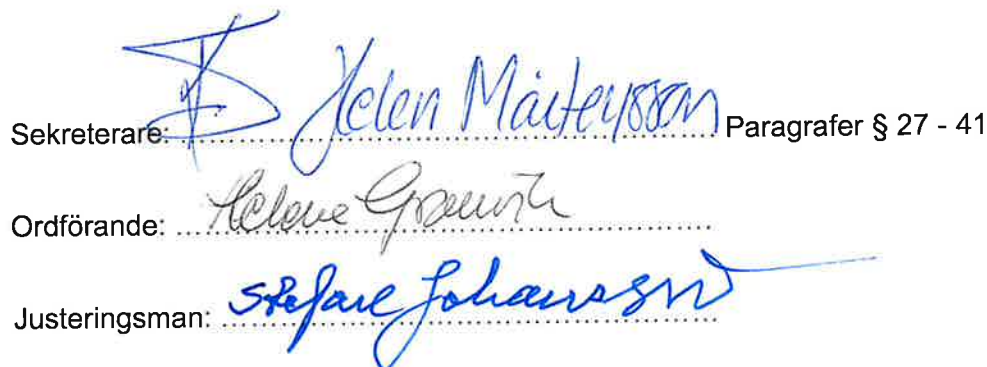 Sekreterare: Helen Mårtensson Paragrafer § 27 - 41
Ordförande: Helene
Justeringsman: Stefan Johansson